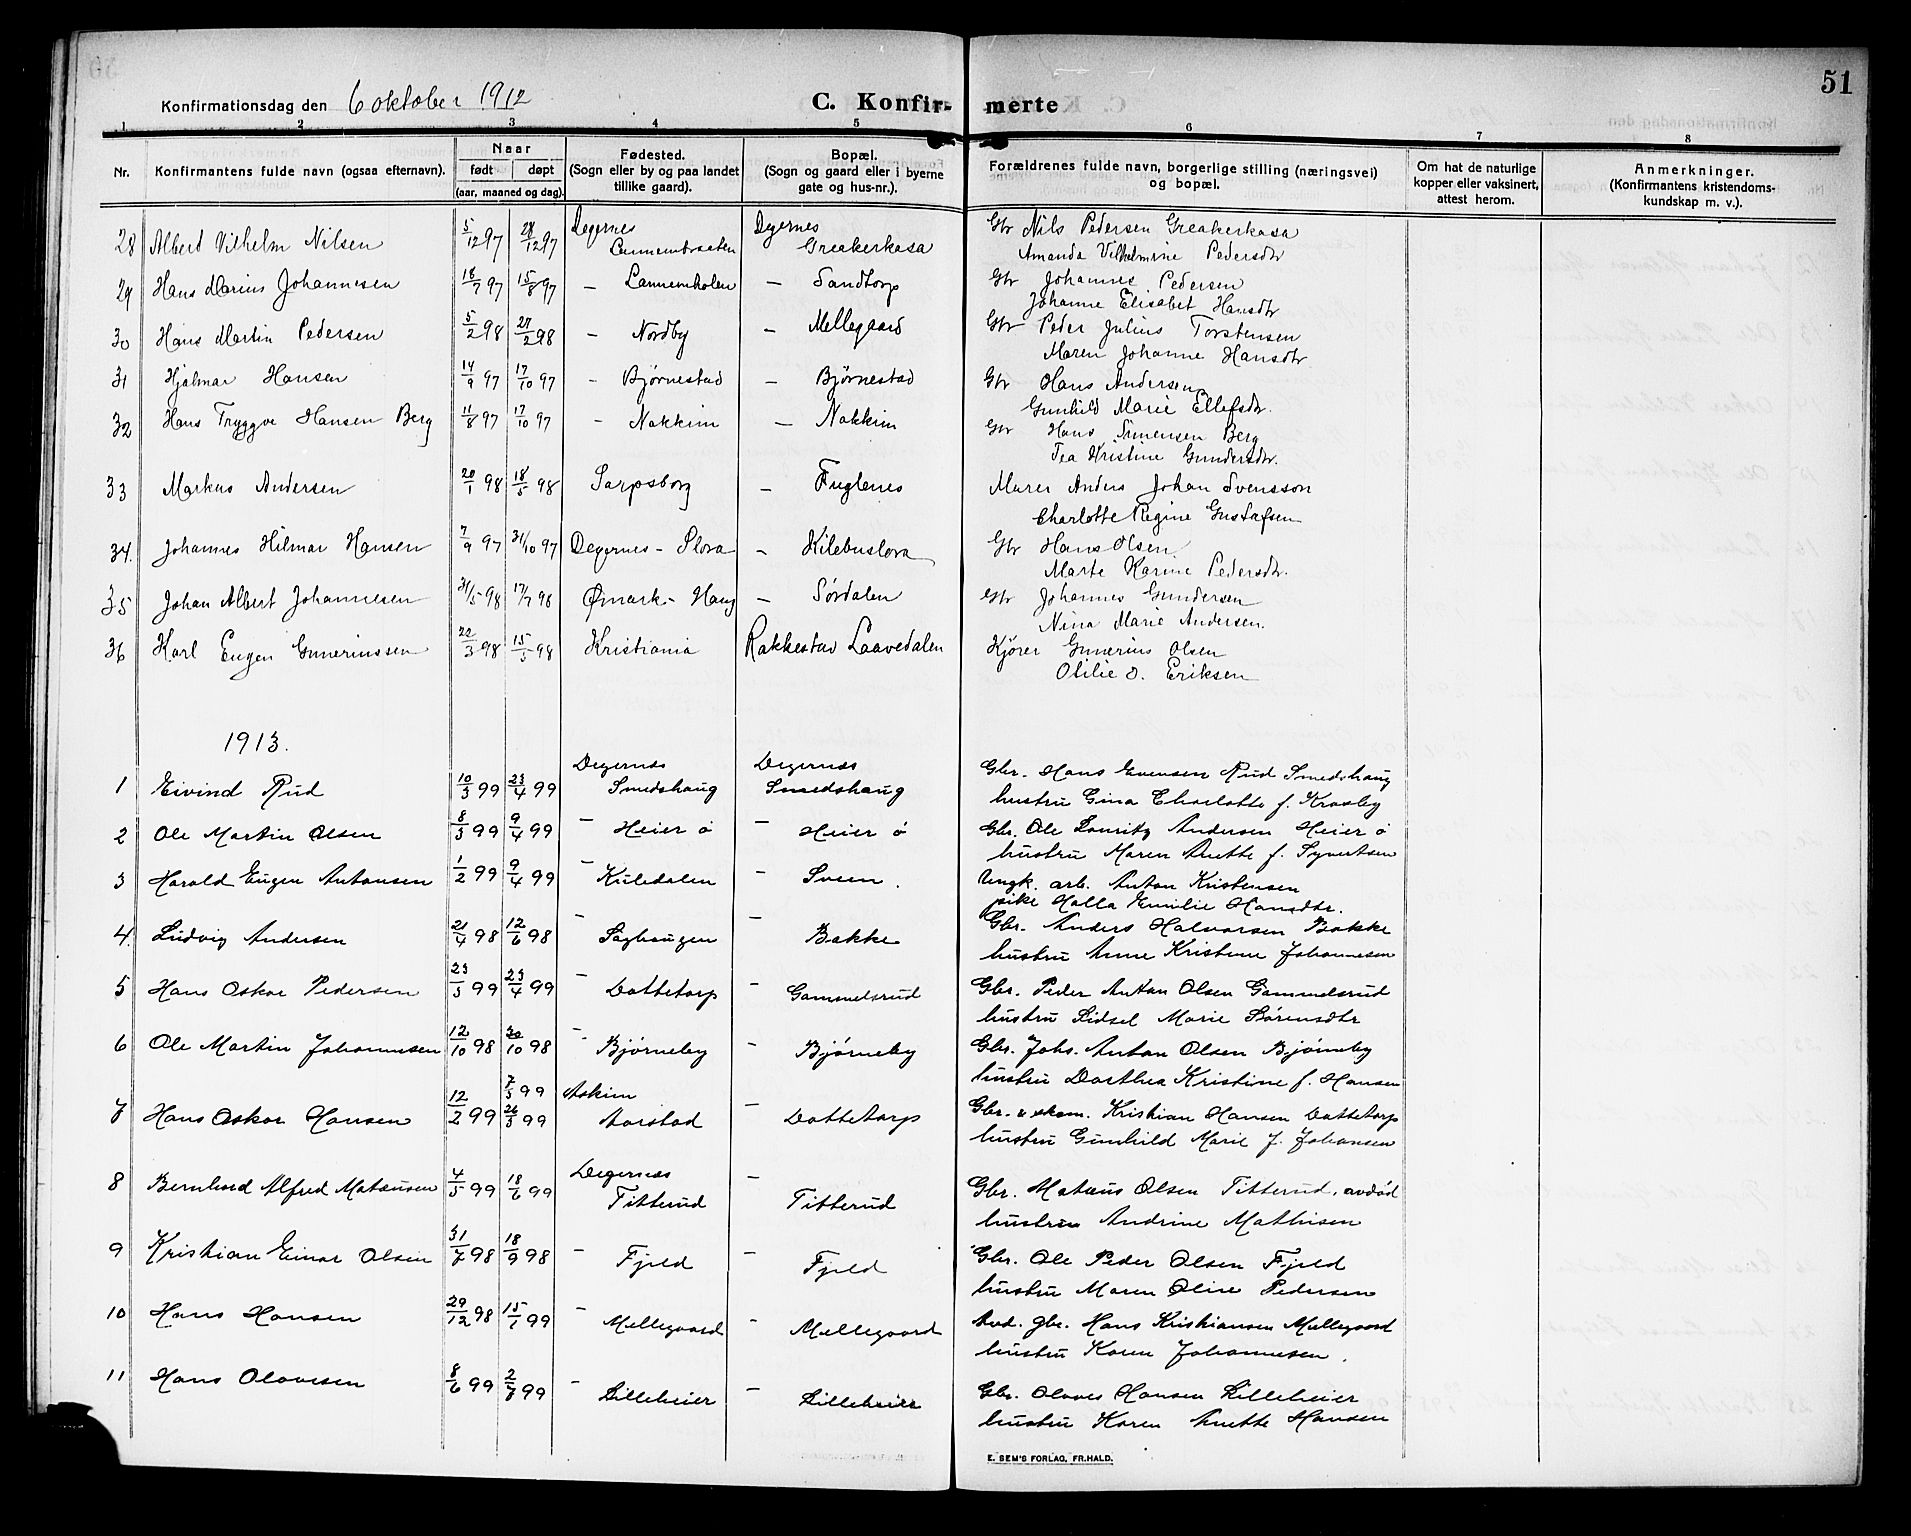 51
Konfirmationsdag den 6 oktober 1912
C. Konfir- merte
1 2 3 4 5 6 7 8
Nr.
Konfirmantens fulde navn (ogsaa efternavn).
Naar
født døpt
(aar, maaned og dag).
Fødested.
(Sogn eller by og paa landet
tillike gaard).
Bopæl.
(Sogn og gaard eller i byerne
gate og hus-nr.).
Forældrenes fulde navn, borgerlige stilling (næringsvei)
og bopæl.
Om hat de naturlige
kopper eller vaksinert,
attest herom.
Anmerkninger.
(Konfirmantens kristendoms-
kundskap m. v.).
28 Albert Vilhelm Nilsen 5/12 97 28/12 97 Degernes Degernes Greakerkasa Gbr Nils Pedersen Greakerkasa
Amanda Vilhelmine Pedersdtr
29 Hans Marius Johannesen 18/7 97 15/8 97 — Lannemholen — Sandtorp Gbr Johannes Pedersen
Johanne Elisabet Hansdtr
30 Hans Martin Pedersen 5/2 98 27/2 98 — Nordby — Mellegaard Gbr Peder Julius Torstensen
Maren Johanne Hansdtr
31 Hjalmar Hansen 14/9 97 17/10 97 — Bjørnestad — Bjørnestad Gbr Hans Andersen
Gunhild Marie Ellefsdtr.
32 Hans Tryggve Hansen Berg 11/8 97 17/10 97 — Nakkim — Nakkim Gbr Hans Simensen Berg
Tea Kristine Gundersdtr.
33 Markus Andersen 20/1 98 18/5 98 Sarpsborg — Fuglenes Murer Anders Johan Svensson
Charlotte Regine Gustafsen
34. Johannes Hilmar Hansen 7/9 97 31/10 97 Degernes - Slora — Kilebuslora Gbr Hans Olsen
Marte Karine Pedersdtr.
35 Johan Albert Johannesen 31/5 98 17/7 98 Ømark - Haug — Sørdalen Gbr Johannes Gundersen
Nina Marie Andersen.
36 Karl Eugen Gunerinssen 22/3 98 15/5 98 Kristiania Rakkestad Laavedalen Kjører Gunerius Olsen
Otilie O. Eriksen
1913.
1 Eivind Rud 10/3 99 23/4 99 Degernæs Smedshaug Degernæs Smedshaug Gbr. Hans Evensen Rud Smedshaug
hustru Gina Charlotte f. Kroxby
2 Ole Martin Olsen 8/3 99 9/4 99 — Heier ø — Heier ø Gbr. Ole Lauritz Andersen Heier ø
hustru Maren Anette f. Syvertsen
3 Harald Eugen Antonsen 1/2 99 9/4 99 — Kuledalen — Sveen. Ungk. arb. Anton Kristensen
pike Halla Emilie Hansdtr.
4. Ludvig Andersen 21/4 98 12/6 98 — Saghaugen — Bakke Gbr. Anders Halvorsen Bakke
hustru Anne Kristine Johannesen
5 Hans Oskar Pedersen 23/3 99 23/4 99 — Dottetorp — Gammelsrud Gbr. Peder Anton Olsen Gammelsrud
hustru Sidsel Marie Sørensdtr
6 Ole Martin Johannesen 12/10 98 30/10 98 — Bjørneby — Bjørneby Gbr. Johs. Anton Olsen Bjørneby
hustru Dorthea Kristine f. Hansen
7 Hans Oskar Hansen 12/2 99 7/3 99 26/3 99 Askim Aarstad — Dottetorp Gbr. & skom. Kristian Hansen Dottetorp
hustru Gunhild Marie f. Johansen
8 Bernhard Alfred Matæusen 4/5 99 18/6 99 Degernæs Titterud — Titterud Gbr. Matæus Olsen Titterud, avdød
hustru Andrine Mathisen
9 Kristian Einar Olsen 31/7 98 18/9 98 — Fjeld — Fjeld Gbr. Ole Peder Olsen Fjeld
hustru Maren Olise Pedersen
10 Hans Hansen 29/12 98 15/1 99 — Mellegaard — Mellegaard Avd. gbr. Hans Kristiansen Mellegaard
hustru Karen Johannesen.
11 Hans Olavesen 8/6 99 2/7 99 — Lilleheier — Lilleheier Gbr. Olaves Hansen Lilleheier
hustru Karen Anette Hansen
E. SEM'S FORLAG, FR.HALD.